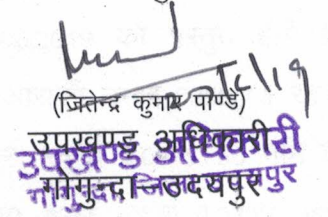 (जितेन्द्र कुमार पाण्डे)
उपखण्ड अधिकारी
उपखण्ड अधिकारी
गोगुन्दा जिला उदयपुर
गोगुन्दा जिला उदयपुर